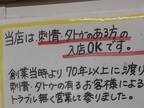 当店は、刺青・タトゥーのある方の
入店OKです。
創業当時より70年以上に渡り
刺青・タトゥーの有るお客様による
トラブル無く営業して参りました。